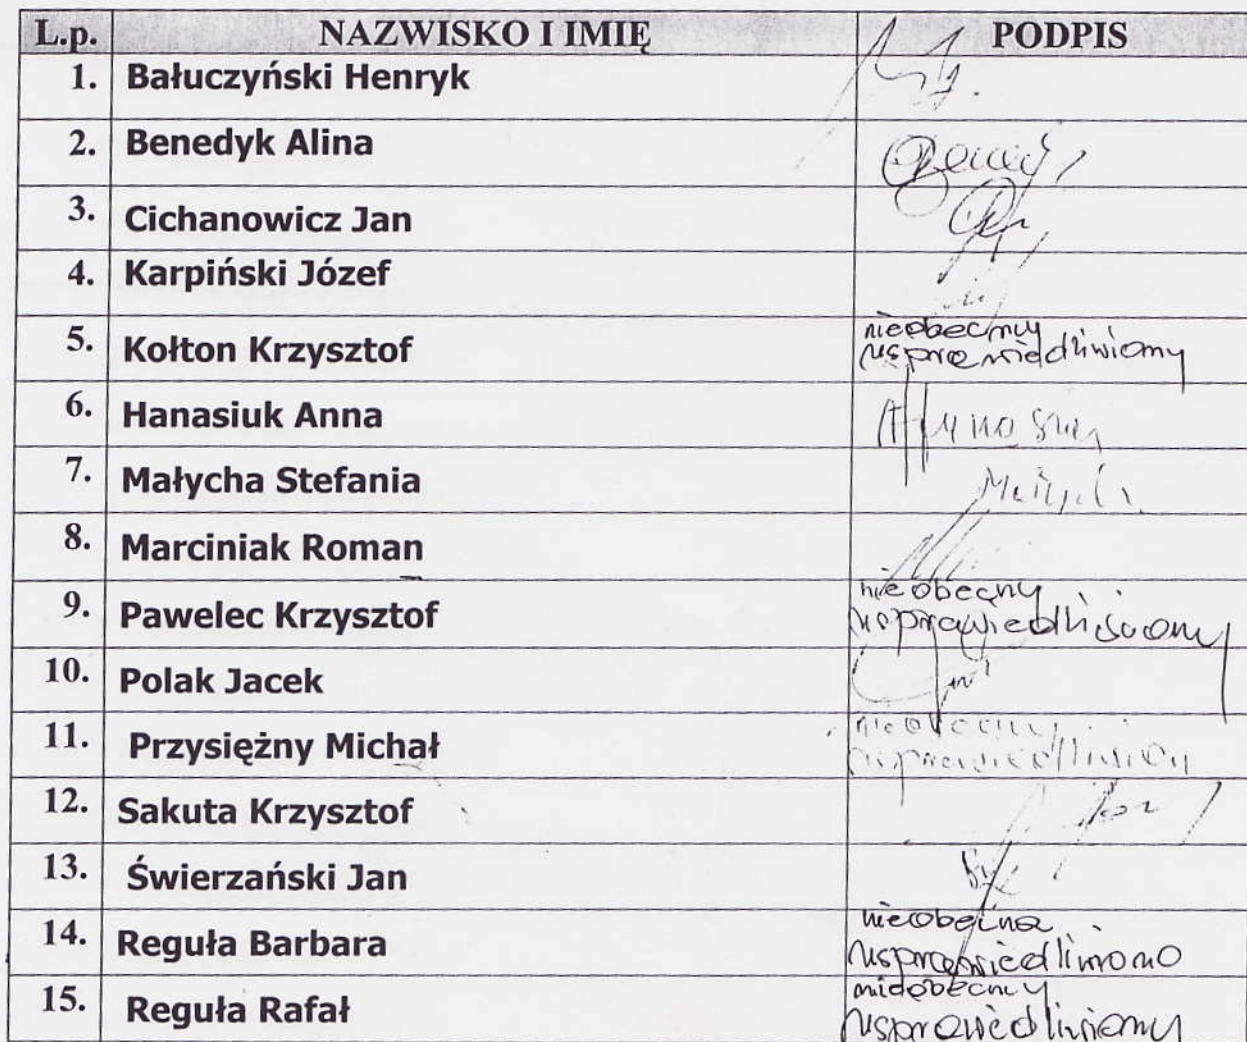 L.p. NAZWISKO I IMIĘ PODPIS
1. Bałuczyński Henryk
2. Benedyk Alina
3. Cichanowicz Jan
4. Karpiński Józef
5. Kołton Krzysztof nieobecny
usprawiedliwiony
6. Hanasiuk Anna
7. Małycha Stefania
8. Marciniak Roman
9. Pawelec Krzysztof nieobecny
usprawiedliwiony
10. Polak Jacek
11. Przysiężny Michał nieobecny
12. Sakuta Krzysztof
13. Świerzański Jan
14. Reguła Barbara nieobecna
usprawiedliwiona
15. Reguła Rafał nieobecny
usprawiedliwiony